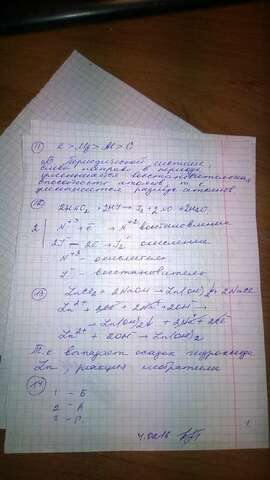 11 K > Mg > Al > C
В Периодической системе,
слева направо в периоде
уменьшается восстановительная
способность атомов, т.к
уменьшается радиус атомов
12 2HNO2 + 2HJ → J2 + 2NO + 2H2O
2 | N+3 + e → N+2 восстановление
2J- - 2e → J2 окисление
N+3 - окислитель
J- - восстановитель
13 ZnCl2 + 2NaOH → Zn(OH)2 + 2NaCl
Zn2+ + 2Cl- + 2Na+ + 2OH- →
→ Zn(OH)2↓ +
Zn2+ + 2OH- → Zn(OH)2
Т.к выпадает осадок гидроксида
14
1 - Б
2 - А
3 - Г